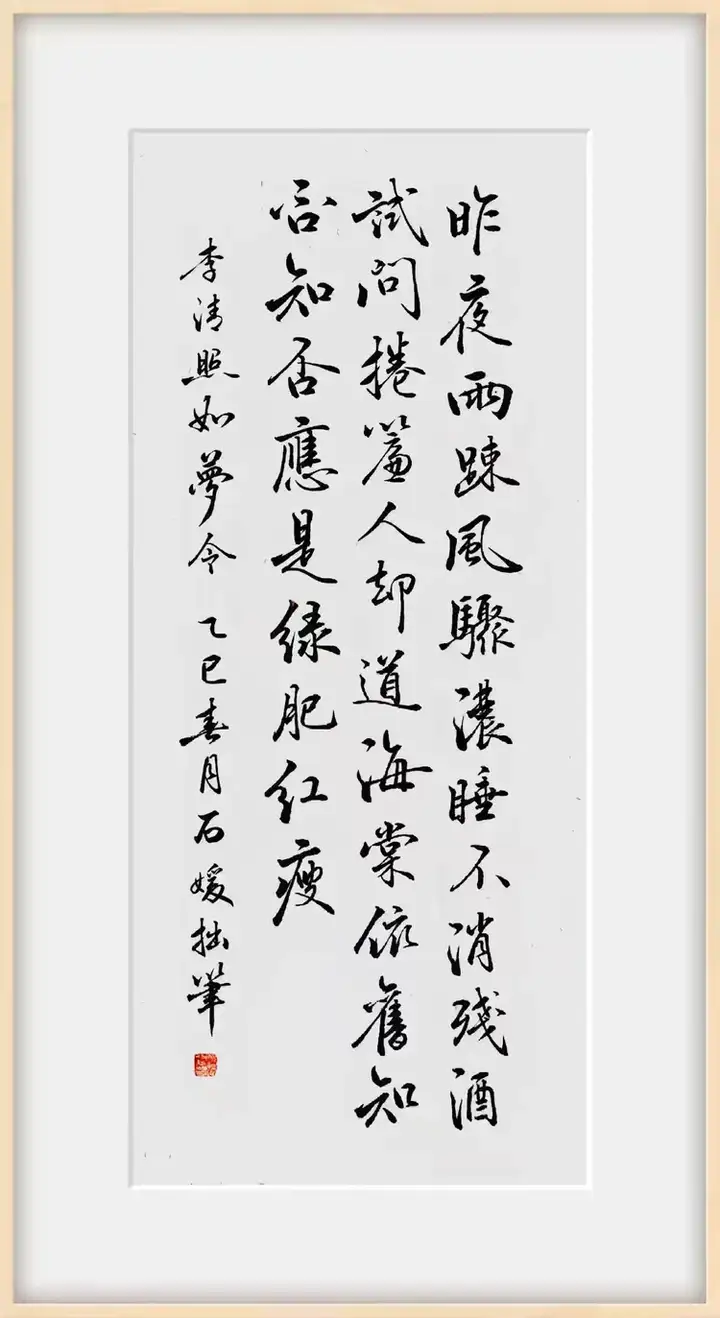 昨夜雨踈風驟濃睡不消殘酒
試問捲簾人却道海棠依舊知
否知否應是緑肥紅瘦
李清照如夢令 乙巳春月石媛拙筆